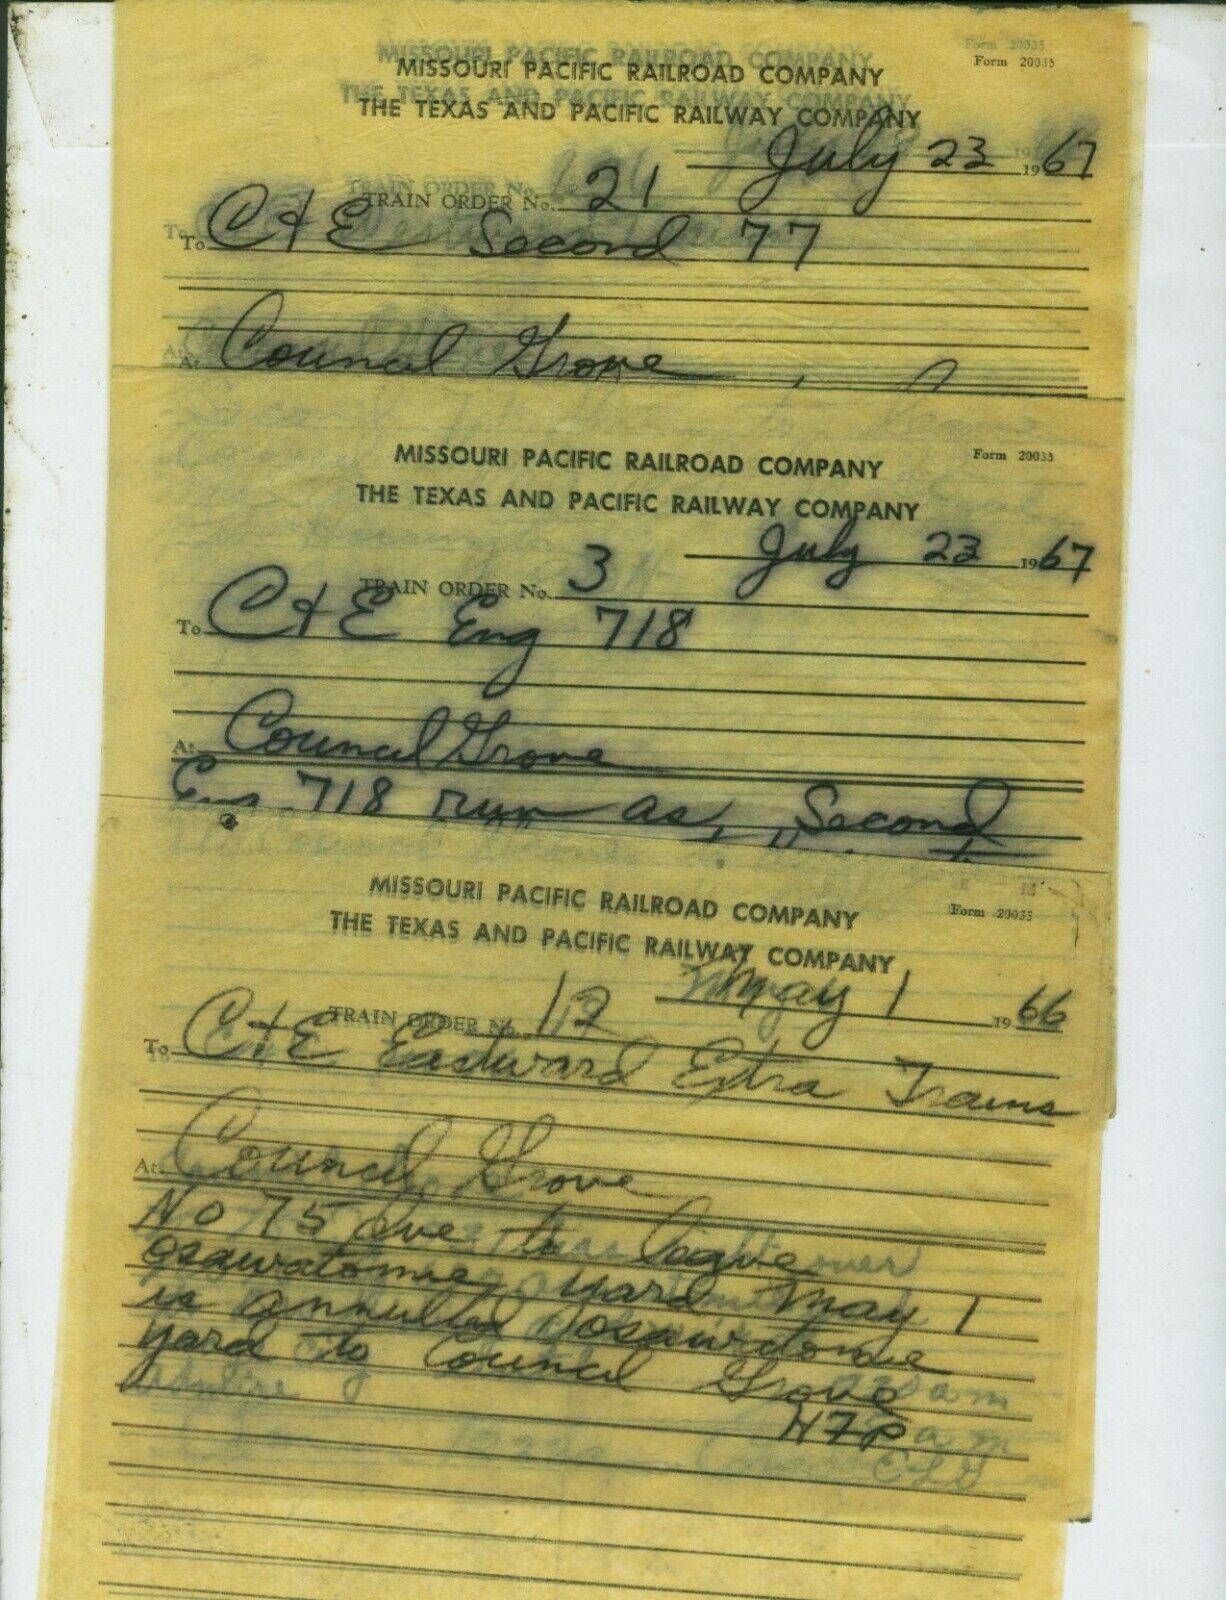 Form 20035
MISSOURI PACIFIC RAILROAD COMPANY
Form 20035
THE TEXAS AND PACIFIC RAILWAY COMPANY
July 23 1967
TRAIN ORDER No. 21
To C & E Second 77
At Council Grove
MISSOURI PACIFIC RAILROAD COMPANY
Form 20035
THE TEXAS AND PACIFIC RAILWAY COMPANY
July 23 1967
TRAIN ORDER No. 3
To C & E Eng 718
At Council Grove
Eng 718 run as Second
MISSOURI PACIFIC RAILROAD COMPANY
Form 20035
THE TEXAS AND PACIFIC RAILWAY COMPANY
May 1 1966
TRAIN ORDER No. 12
To C & E Eastward Extra Trains
At Council Grove
No 75 due to leave
osawatomie yard May 1
is annulled osawatomie
yard to Council Grove
H F P